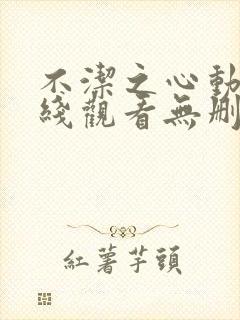 不潔之心動
綫觀看無刪
紅薯芋頭